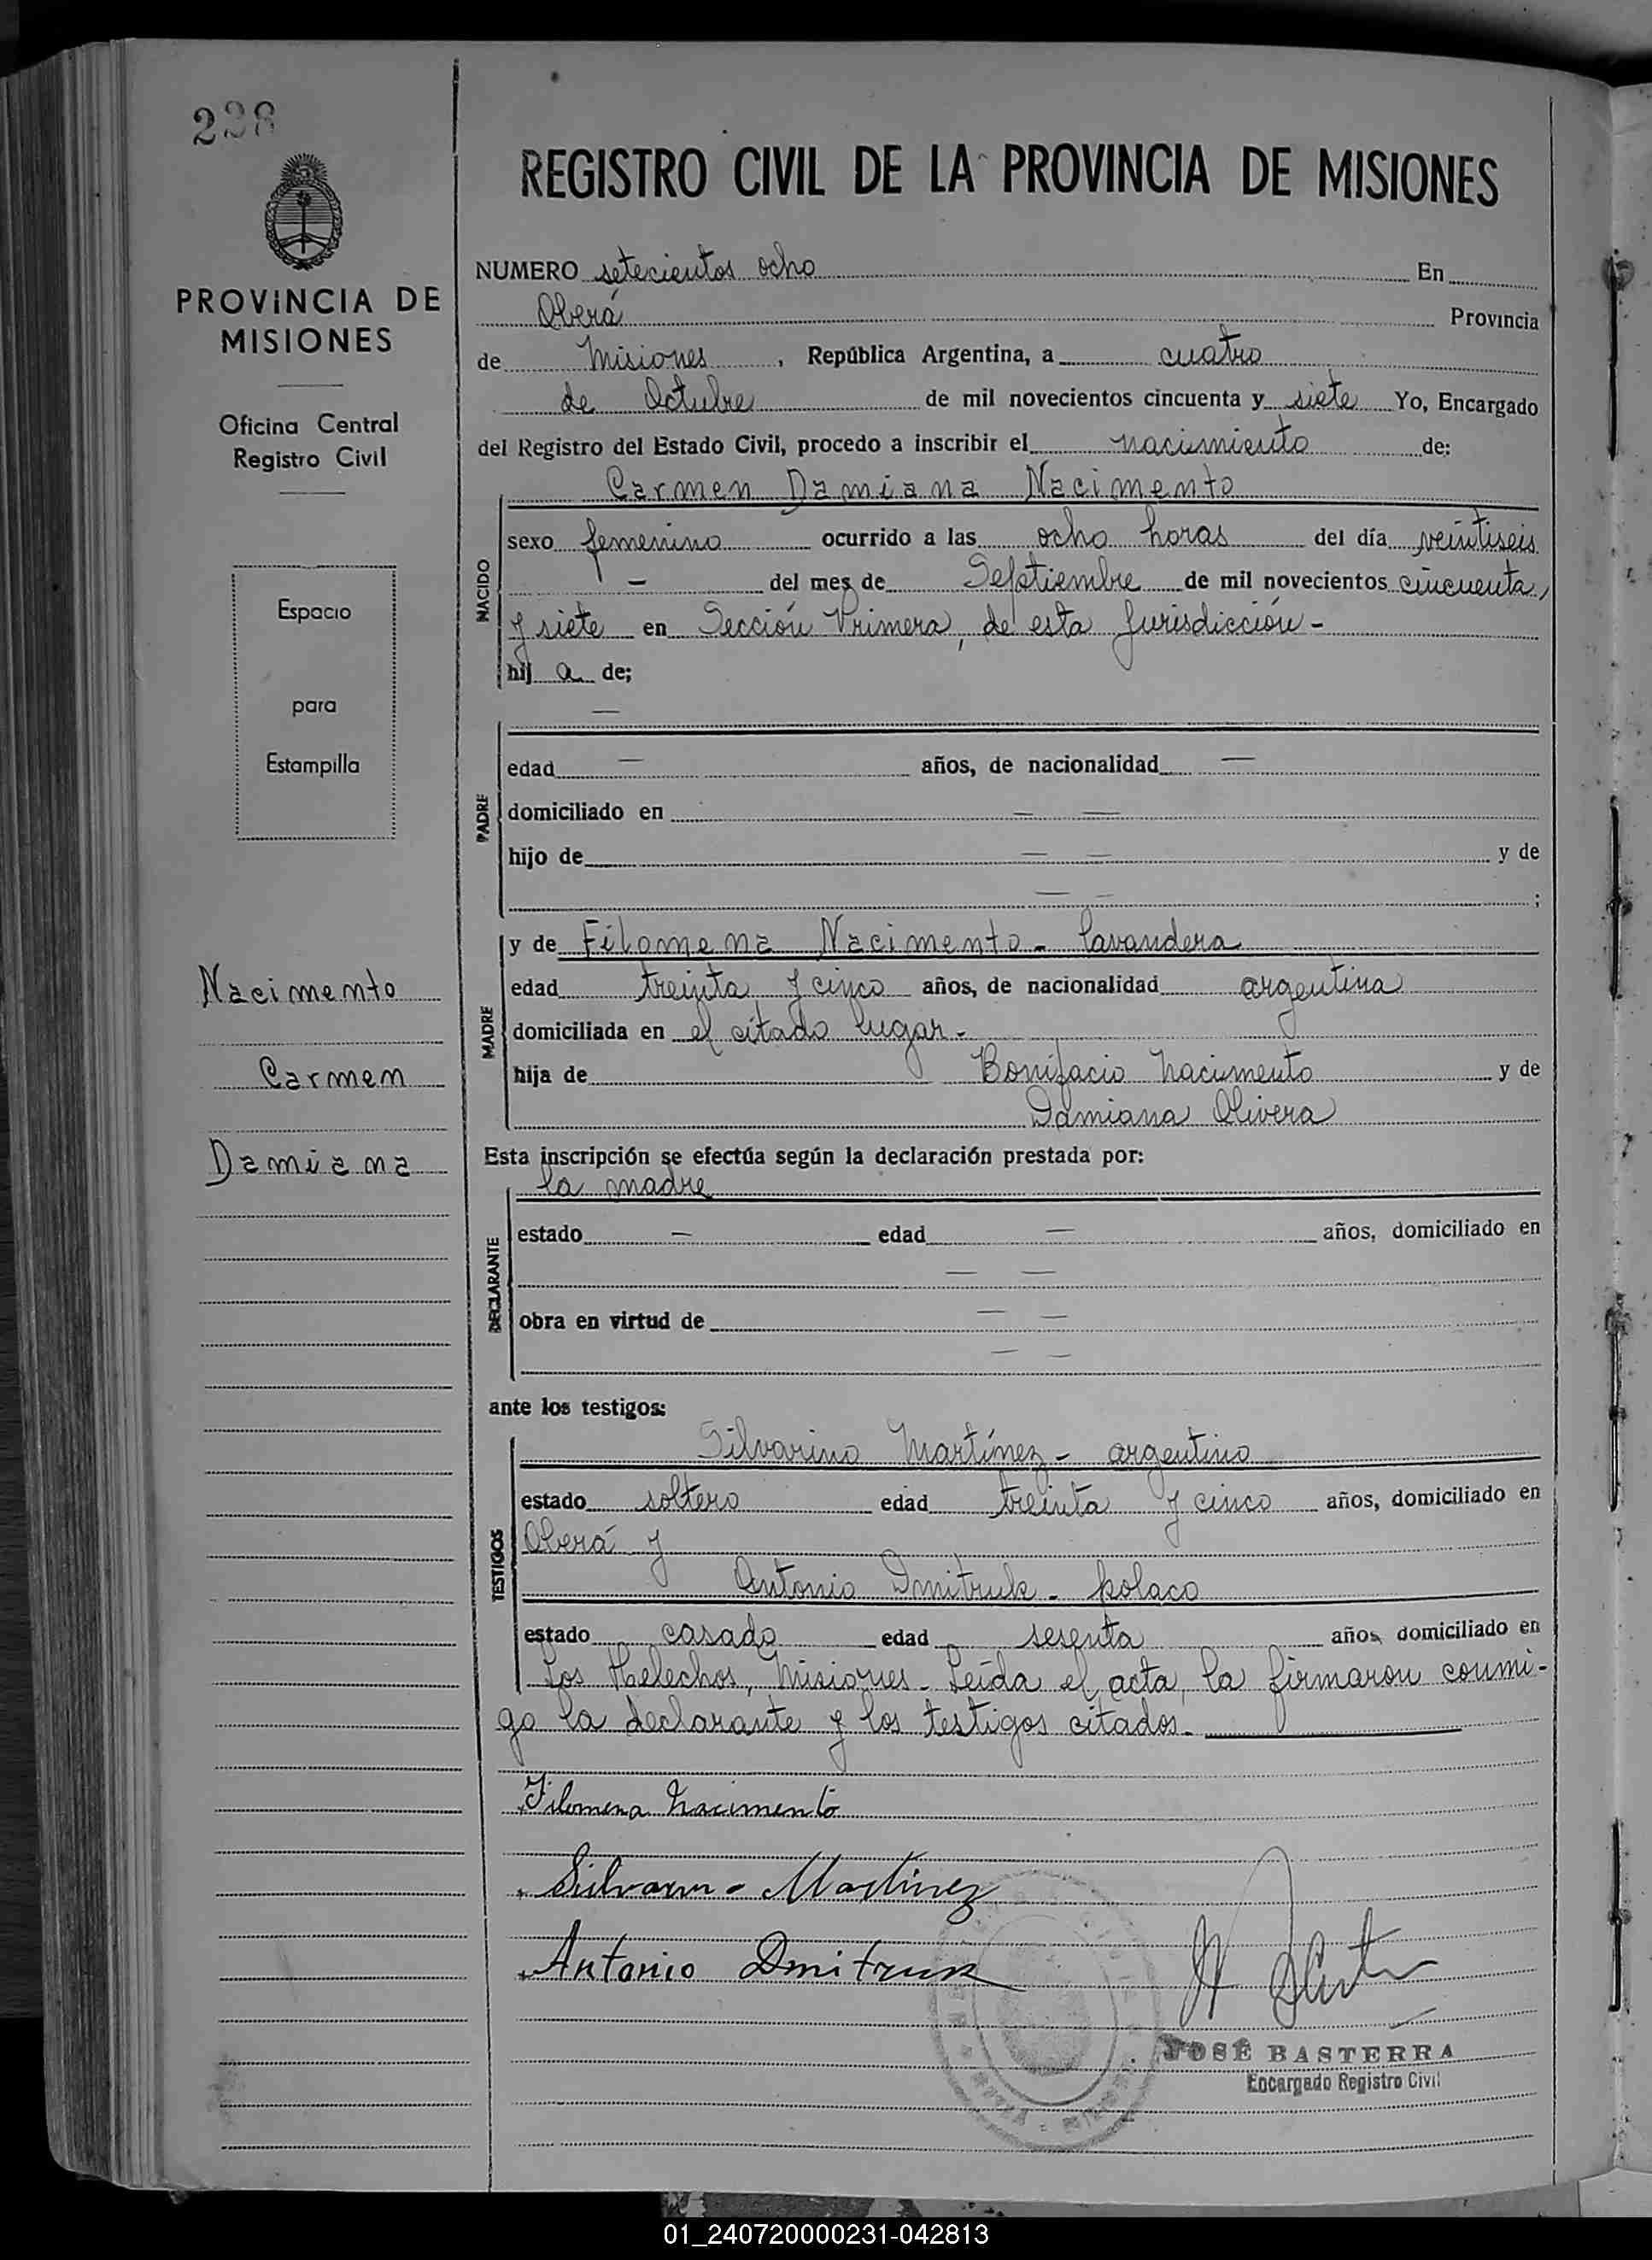 238
REGISTRO CIVIL DE LA PROVINCIA DE MISIONES
PROVINCIA DE
MISIONES
Oficina Central
Registro Civil
Espacio
para
Estampilla
Nacimento
Carmen
Damiana
NUMERO setecientos ocho En
Oberá Provincia
de Misiones, República Argentina, a cuatro
de Octubre de mil novecientos cincuenta y siete Yo, Encargado
del Registro del Estado Civil, procedo a inscribir el nacimiento de:
Carmen Damiana Nacimento
NACIDO
sexo femenino ocurrido a las ocho horas del día veintiseis
— del mes de Septiembre de mil novecientos cincuenta
y siete en Sección Primera, de esta Jurisdicción -
hij a de;
—
PADRE
edad — años, de nacionalidad —
domiciliado en — —
hijo de — — y de
— — ;
MADRE
y de Filomena Nacimento - lavandera
edad treinta y cinco años, de nacionalidad argentina
domiciliada en el citado lugar -
hija de Bonifacio Nacimento y de
Damiana Olivera
Esta inscripción se efectúa según la declaración prestada por:
la madre
DECLARANTE
estado — edad — años, domiciliado en
— —
obra en virtud de — —
— —
ante los testigos:
TESTIGOS
Silvarino Martínez - argentino
estado soltero edad treinta y cinco años, domiciliado en
Oberá y
Antonio Dmitruk - polaco
estado casado edad sesenta años, domiciliado en
Los Helechos, Misiones - Leída el acta, la firmaron conmi-
go la declarante y los testigos citados.
Filomena Nacimento
Martinez
Antonio Dmitruk
JOSÉ BASTERRA
Encargado Registro Civil
01_240720000231-042813